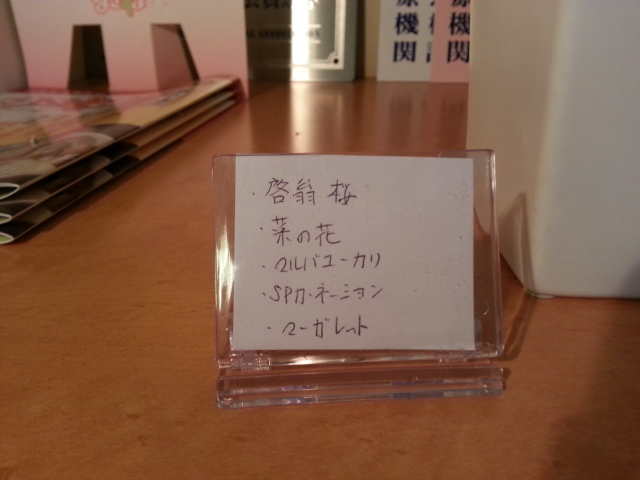 ASSOCIATION
機関
機関
・啓翁桜
・菜の花
・マルバユーカリ
・SPカーネーション
・マーガレット